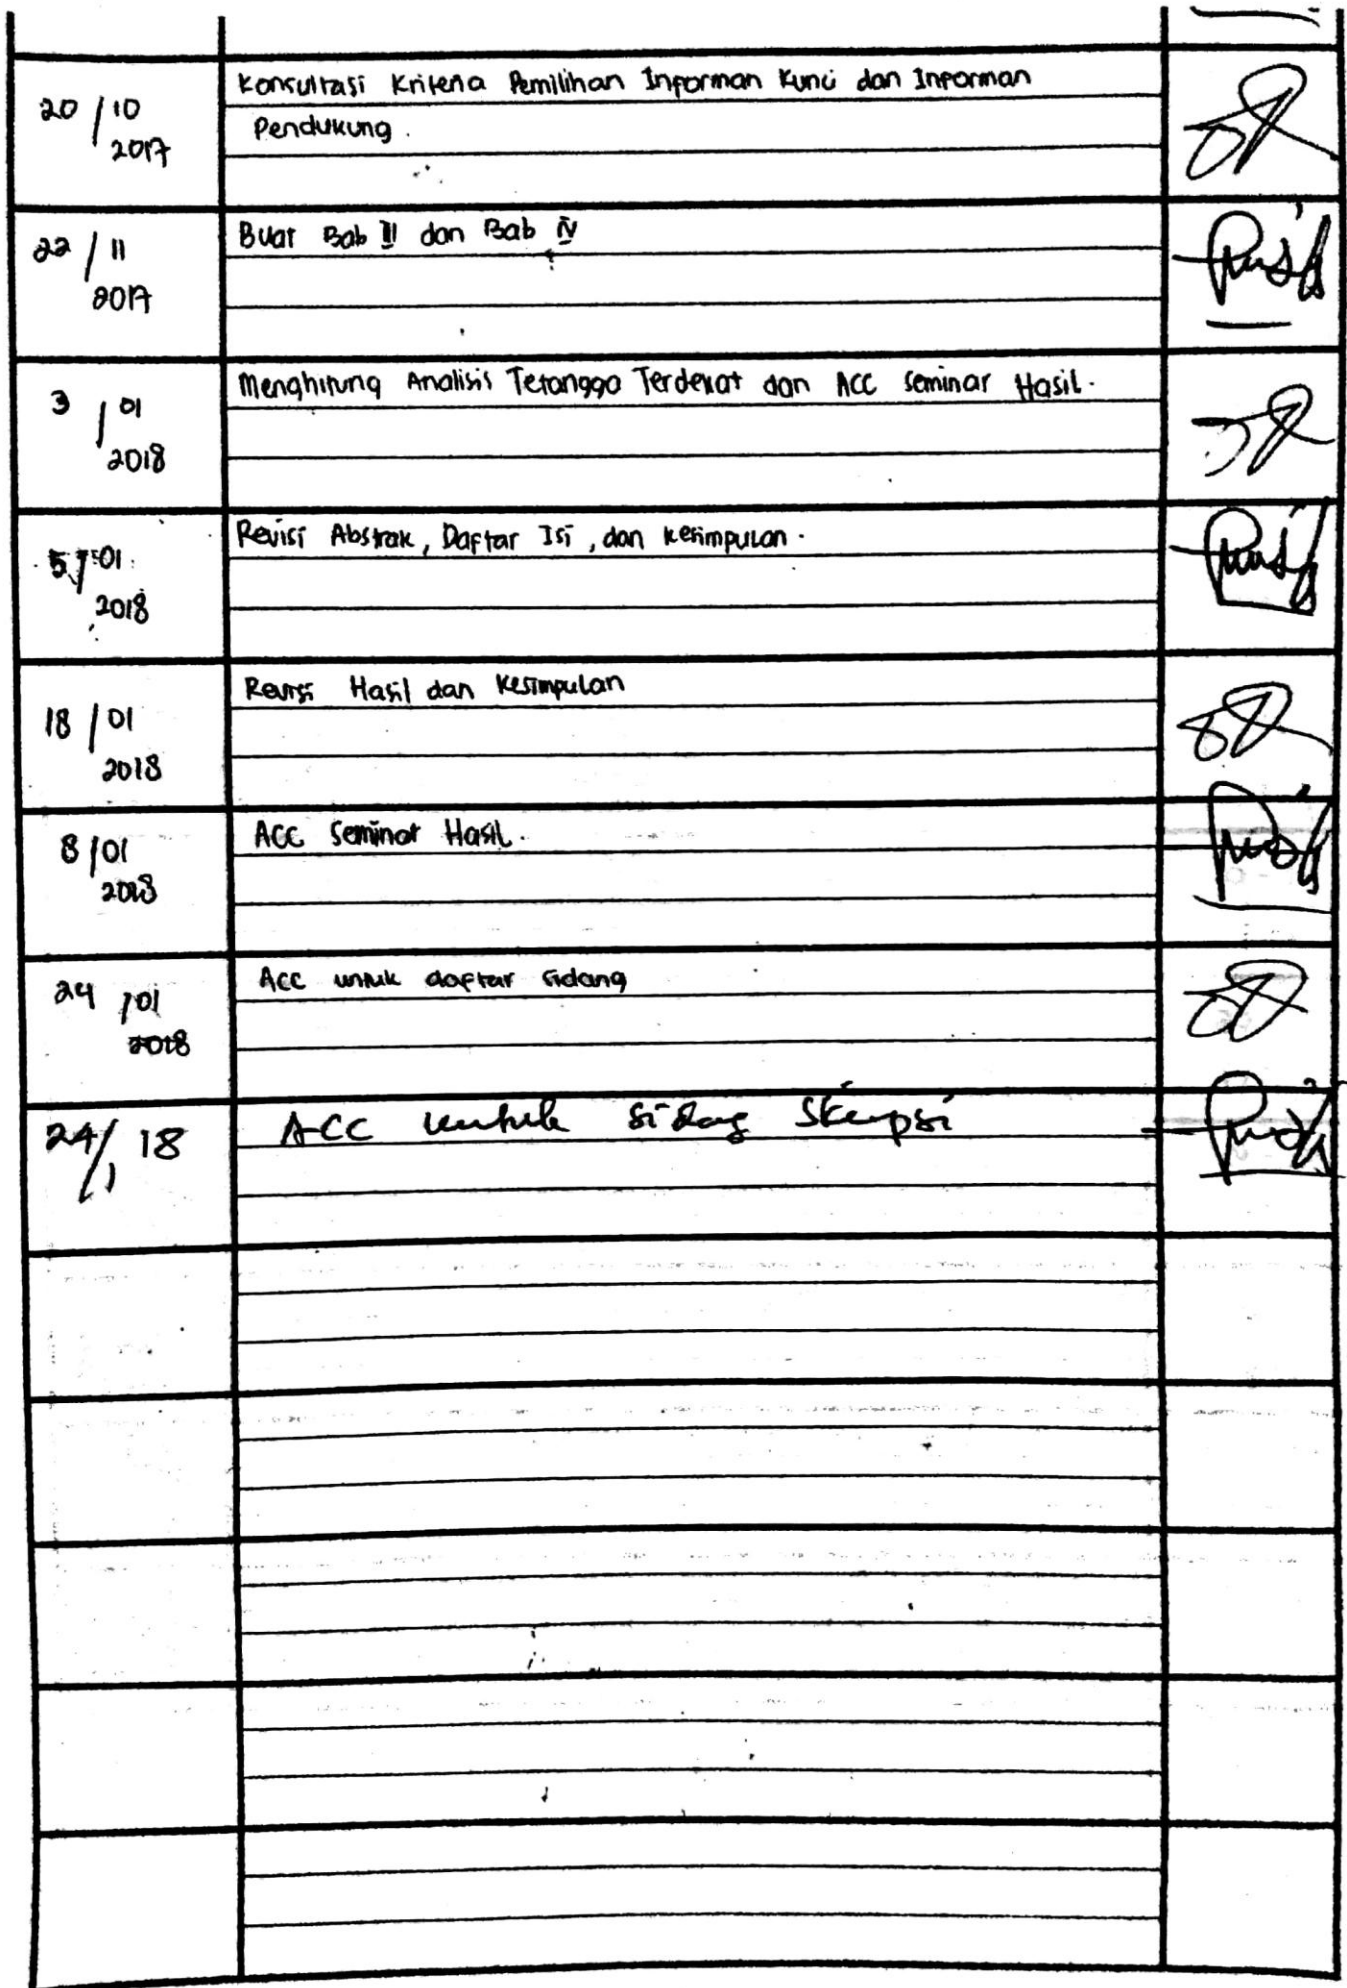 20 / 10
2017
Konsultasi Kriteria Pemilihan Informan Kunci dan Informan
Pendukung.
22 / 11
2017
Buat Bab III dan Bab IV
3 / 01
2018
Menghitung Analisis Tetangga Terdekat dan ACC Seminar Hasil.
5 / 01
2018
Revisi Abstrak, Daftar Isi, dan Kesimpulan.
18 / 01
2018
Revisi Hasil dan Kesimpulan
8 / 01
2018
ACC Seminar Hasil.
24 / 01
2018
ACC untuk daftar sidang
24/1 18
ACC untuk sidang Skripsi